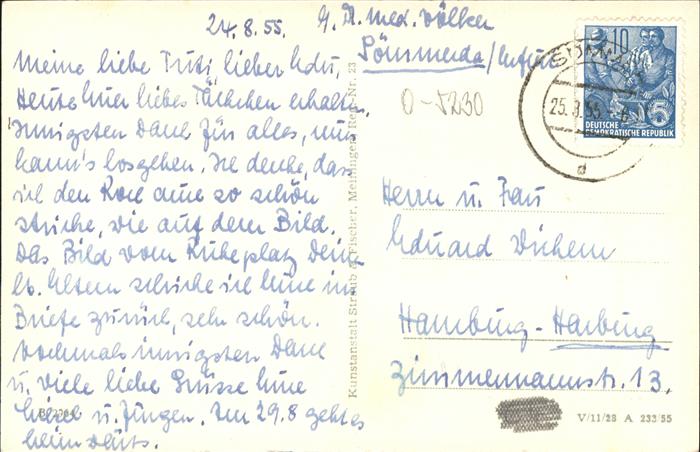 24.8.55.
G. Dr. med. Völker
Sömmerda/Erfurt
Meine liebe Trusi, lieber Edu,
Heute Euer liebes Päckchen erhalten.
Innigsten Dank für alles, nun
kann's losgehen. Ich denke, dass
ich den Rock aue so schön
stricke, wie auf dem Bild.
Das Bild vom Ruheplatz Deine
lb. Eltern schicke ich Eine im
Briefe zurück, sehr schön.
Nochmals innigsten Dank
u. viele liebe Grüsse Eine
u. Jungen. Am 29.8 geht es
heimwärts.
0-5230
10
5
DEUTSCHE
DEMOKRATISCHE REPUBLIK
SÖMMERDA
25.8.55
d
Kunstanstalt Straub & Fischer, Meiningen Reg.-Nr. 23
Herrn u. Frau
Eduard
Hamburg-Harburg
Zimmermannstr. 13.
V/11/28 A 233/55